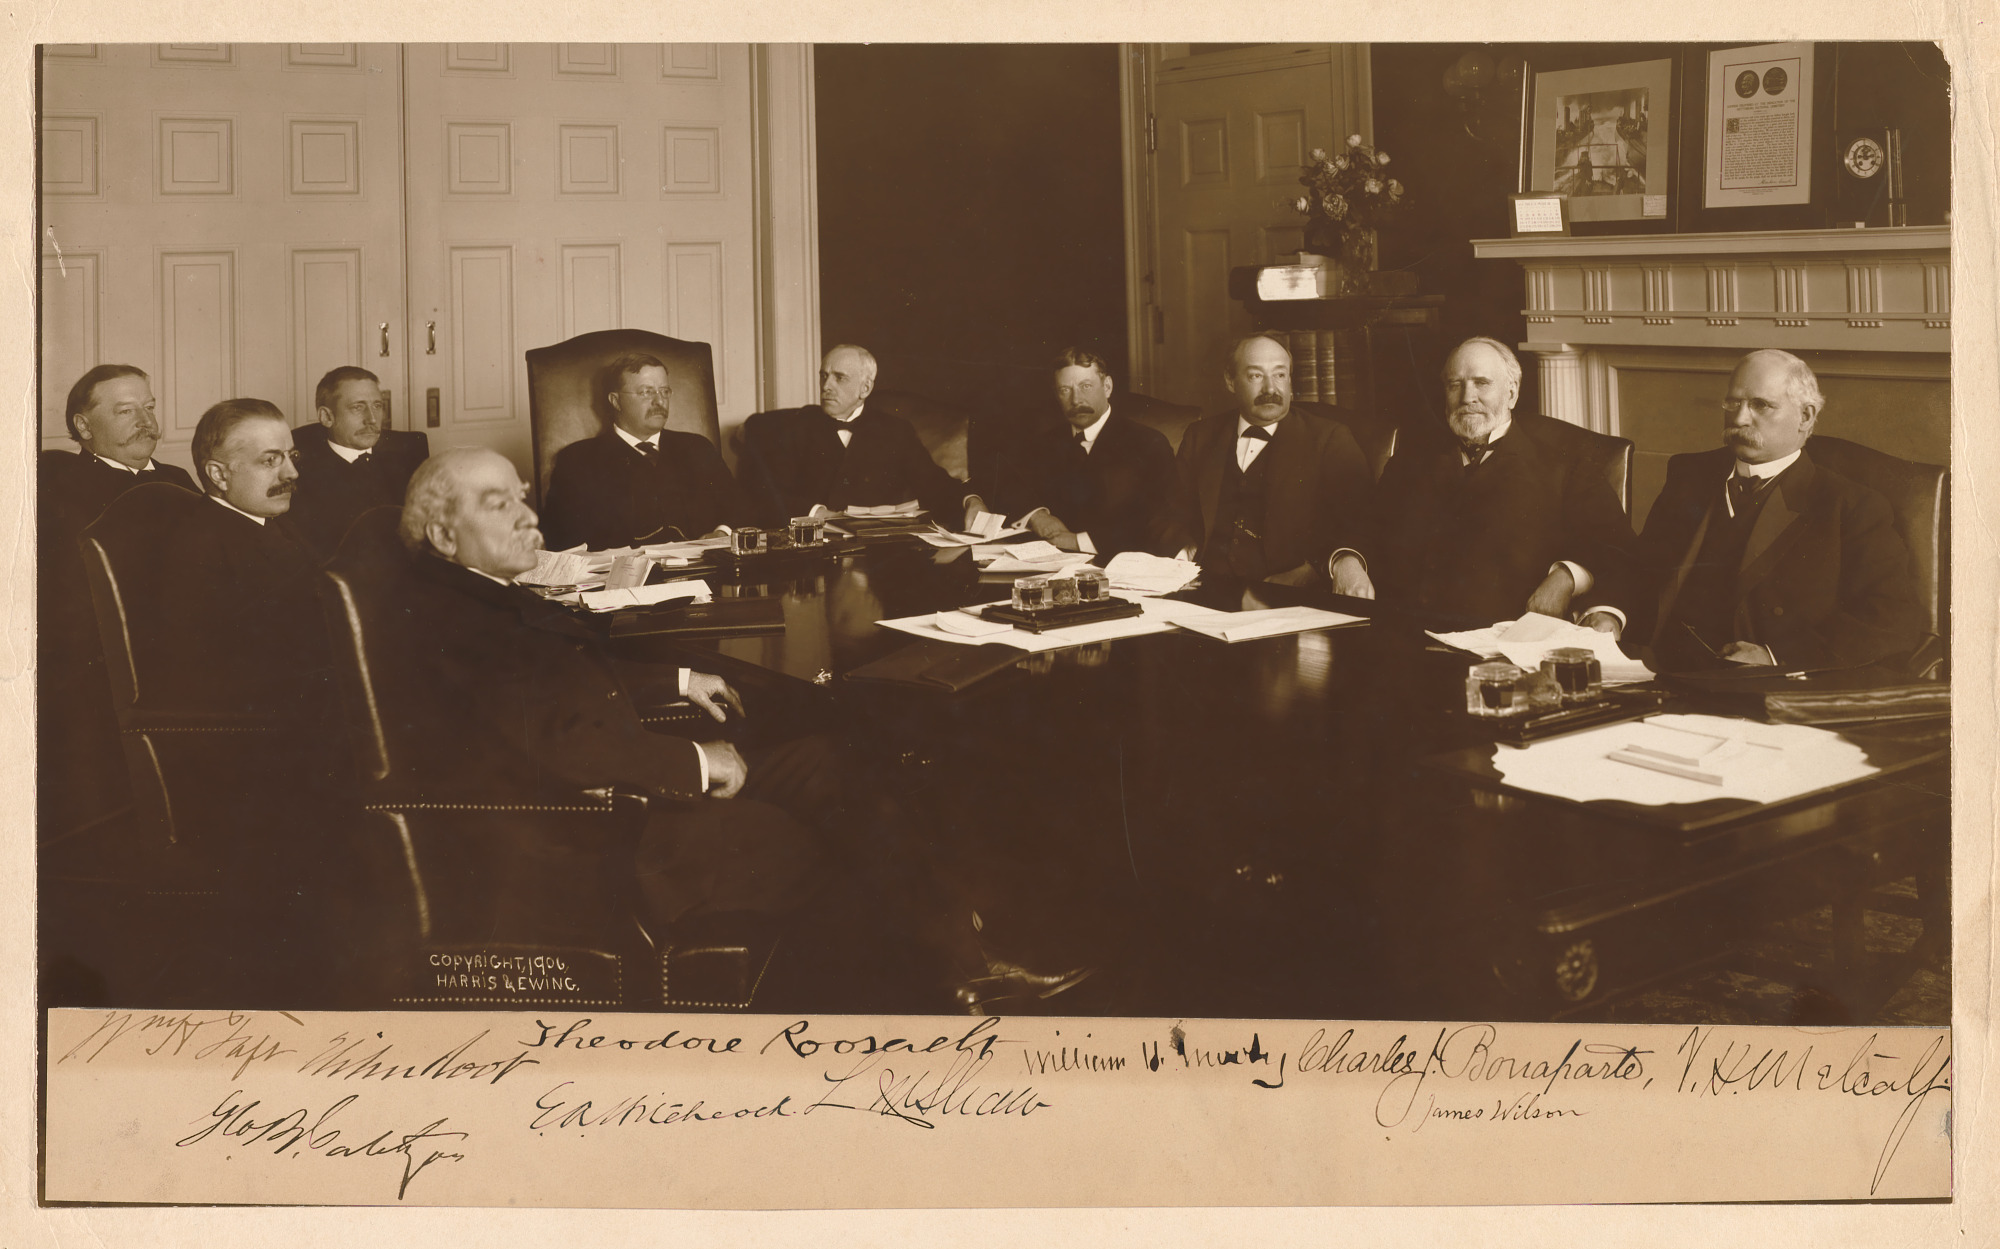 COPYRIGHT, 1906,
HARRIS & EWING.
Wm H Taft
Elihu Root
Theodore Roosevelt
William H. Moody
Charles J. Bonaparte,
V. H. Metcalf.
Geo. B. Cortelyou
E. A. Hitchcock.
L M Shaw
James Wilson